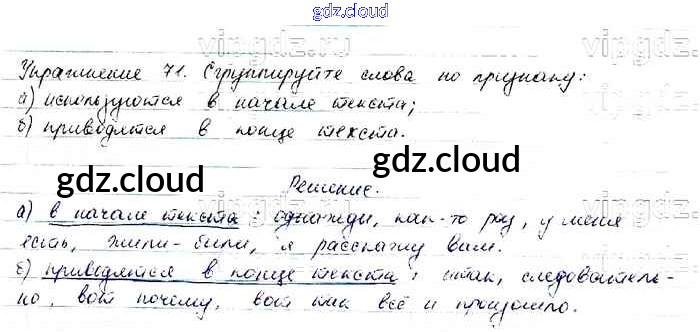 gdz.cloud
vipgdz.ru
Упражнение 71. Сгруппируйте слова по признаку:
а) используются в начале текста;
б) приводятся в конце текста.
gdz.cloud
gdz.cloud
Решение.
а) в начале текста: однажды, как-то раз, у меня
есть, жили-были, я расскажу вам.
б) приводятся в конце текста: итак, следователь-
но, вот почему, вот так всё и произошло.